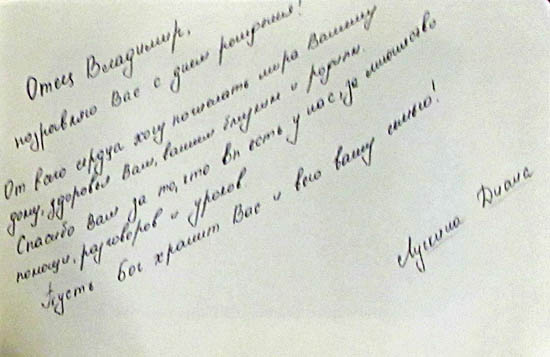 Отец Владимир,
поздравляю Вас с днем рождения!
От всего сердца хочу пожелать мира Вашему
дому, здоровья Вам, вашим близким и родным.
Спасибо Вам за то, что Вы есть у нас, за множество
помощи, разговоров и уроков
Пусть Бог хранит Вас и всю вашу семью!
Лукина Диана